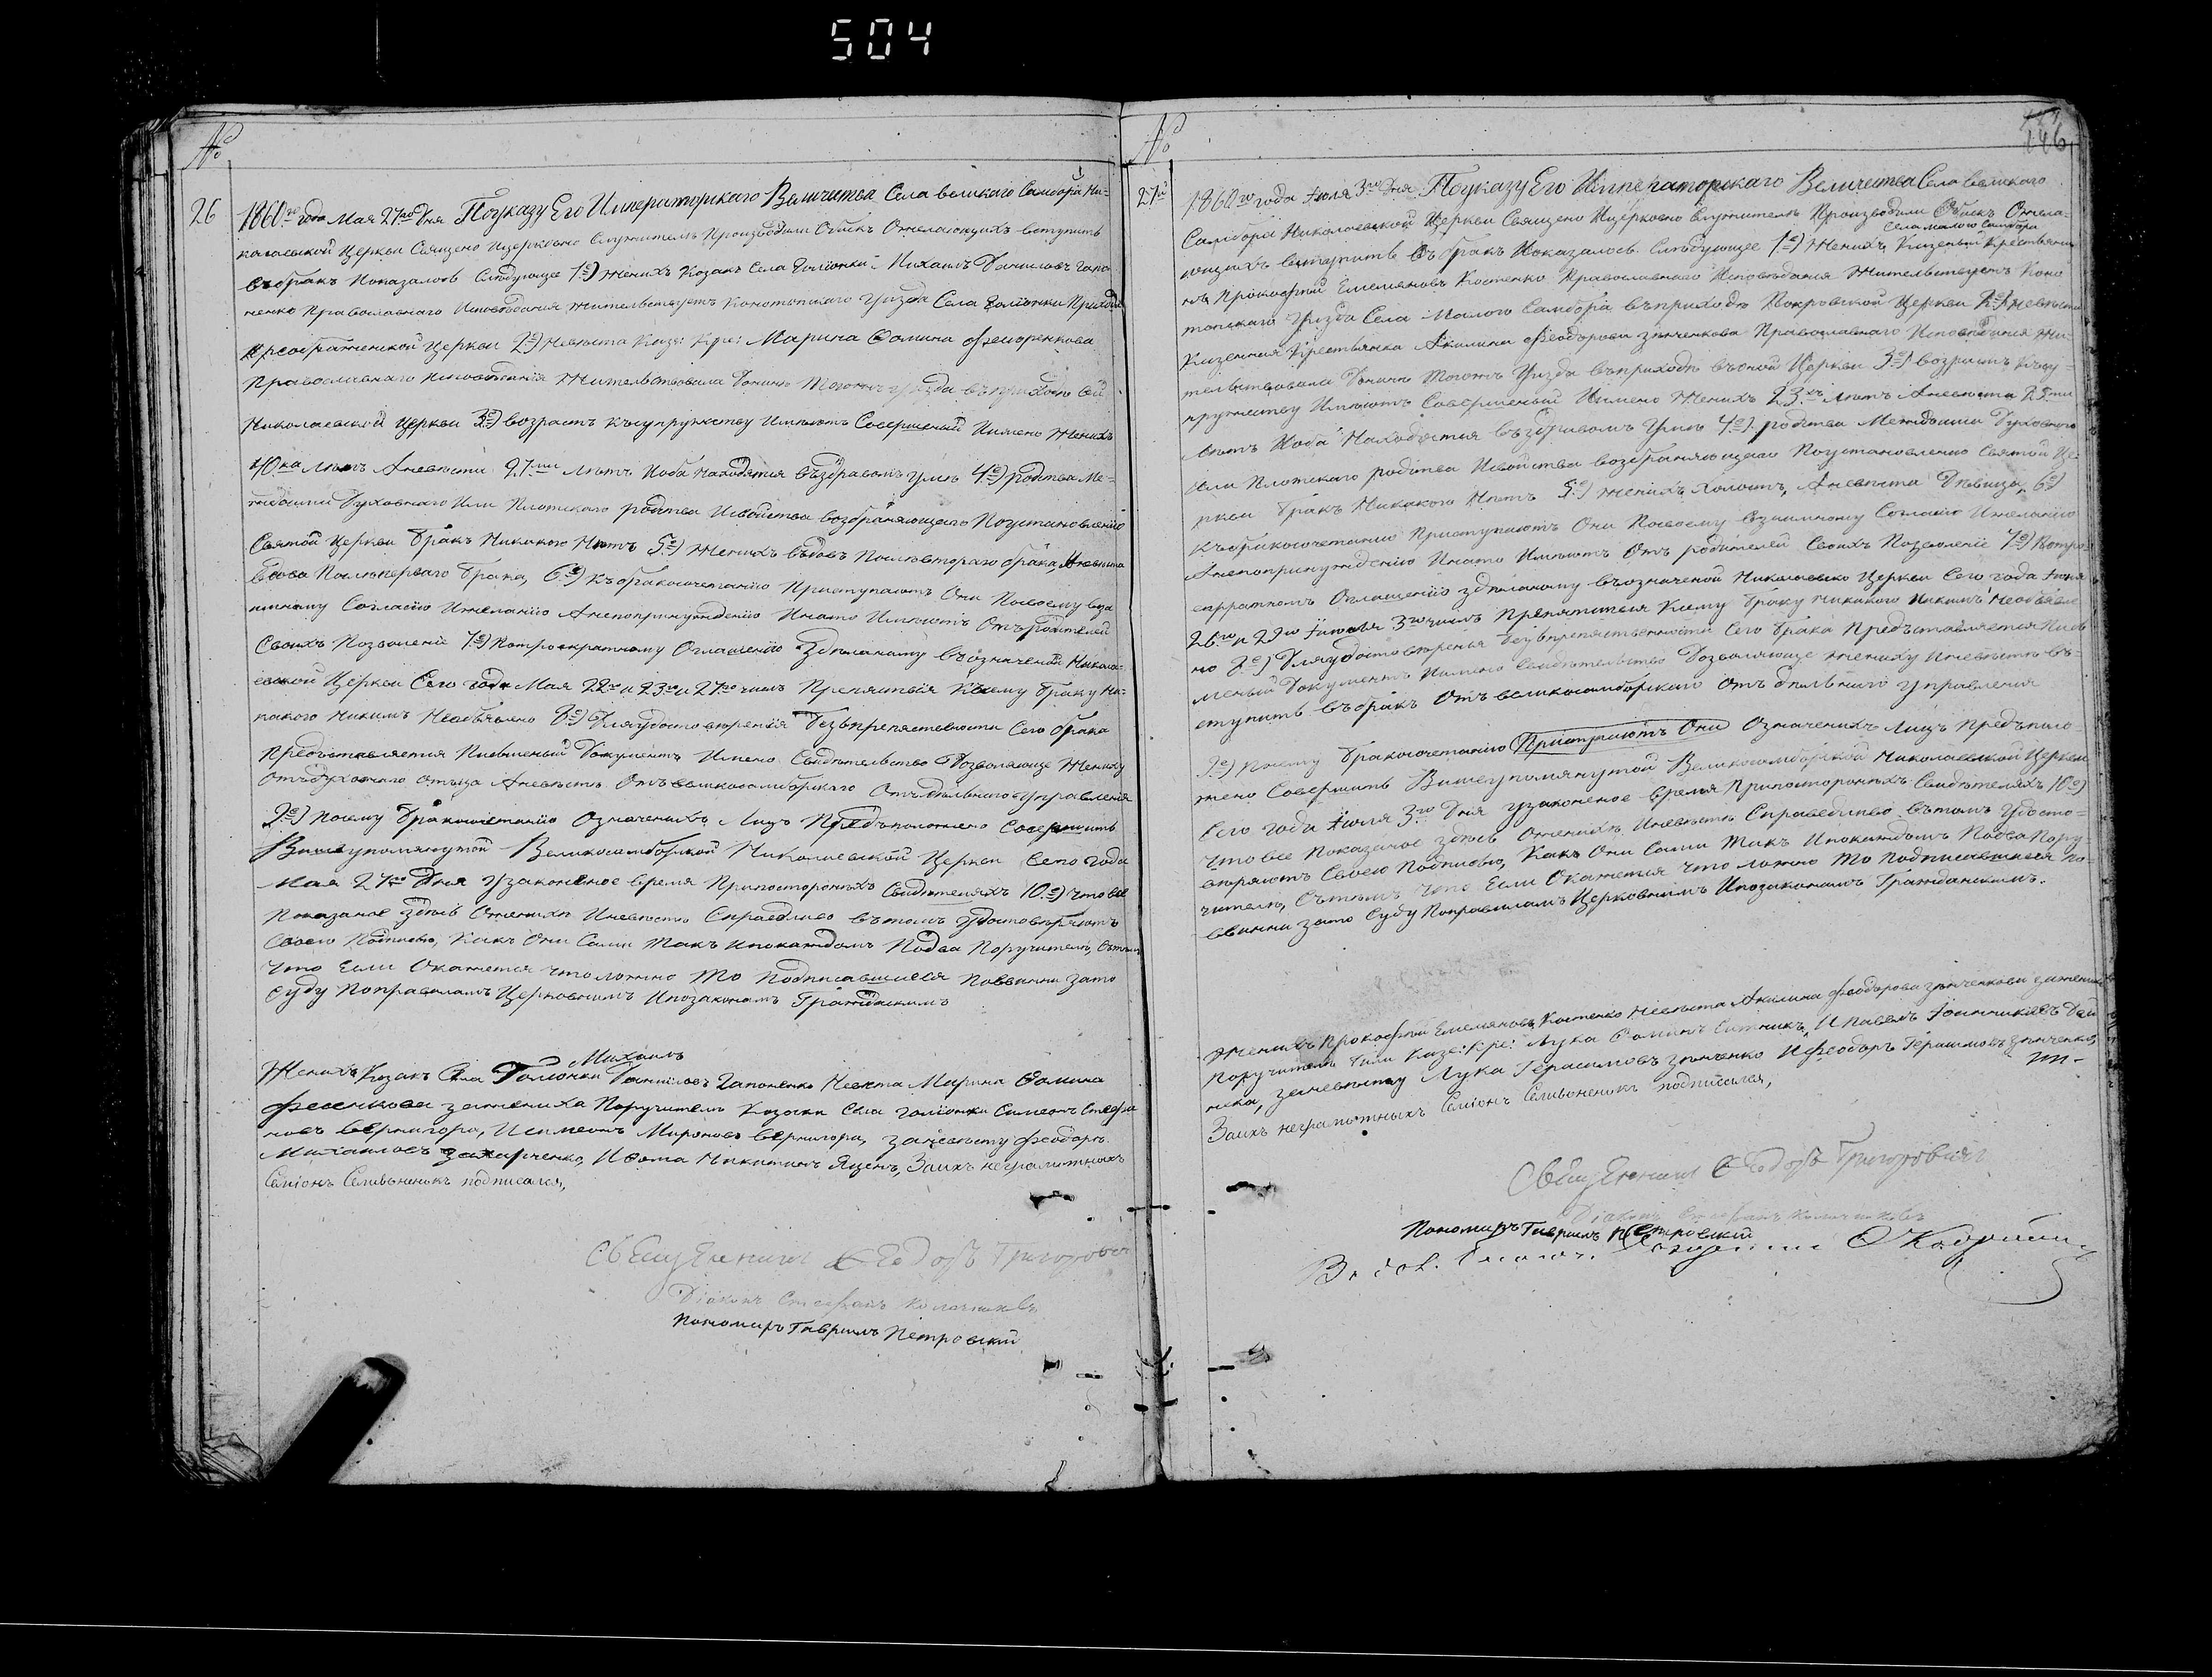 504
№
26
1860го года Мая 27го дня Поуказу Его Императорскаго Величества Села великаго Самбора Ни-
колаевской Церкви Священо Ицерковно Служителъ Производили Обыскъ Ожелающихъ вступить
въбракъ Показалось Следующее 1е) Женихъ Козакъ Села Голіонки Михаилъ Даниловъ Гапо
ненко Православнаго Исповѣдания жительствуетъ Конотопскаго Уизда Села Голіонки Приходи
Преображенской Церкви 2е) Невѣста Каз: Кре: Марина Фомина
Православнаго Исповѣданія Жительствовала Донинѣ Тогожъ Уизда въприходѣ сей
Николаевской Церкви 3е) возрастъ Ксупружеству Имѣютъ Совершеный Имено Женихъ
40ка лѣтъ Аневѣста 27ми лѣтъ Иоба находятся въздравомъ Умѣ 4е) родства Ме-
ждоими Духовнаго Или Плотскаго родства Исвойства возбраняющаго Поустановленію
Святой Церкви бракъ Никакого Нѣтъ 5е) Женихъ вдовъ Послѣвтораго брака, Аневѣста
вдова Послѣперваго брака, 6е) Къбракосочетанію Приступаютъ Они Посвоему вза
имному Согласію Ижеланію Анепопринужденію Инато Имѣютъ Отъродителей
Своихъ Позволеніе 7е) Потроекратному Оглашенію Здѣланому въозначеной Никола-
евской Церкви Сего года Мая 22го и 23го и 27го числъ Препятствія Ксему браку Ни-
какого Никимъ Необъявлено 8е) Дляудостовѣренія безъпрепятствености Сего брака
Предъставляется Писменый Документъ Имено Свидѣтельство Дозволяюще Жениху
Отъдуховнаго отьца Аневѣстѣ Отъвеликосамборскаго Отъдѣльнаго Управленія
9е) Посему бракосочетанію Означенихъ Лицъ Предъположено Совершить
Вишеупомянутой Великосамборской Николаевской Церкви Сего года
Мая 27го Дня Узаконеное время Припосторонихъ Свидѣтеляхъ 10е) Что все
Показаное здѣсь Оженихѣ Иневѣстѣ Справедливо въ томъ Удостовѣряютъ
Своею Подписью, Какъ Они Сами Такъ Ипокаждомъ Подва Поручителя, Стѣмъ
Что Если Окажется чтоложно То Подписавшиеся Повинни Зато
Суду Поправиламъ Церковнимъ Ипозаконамъ Гражданскимъ
Михаилъ
Женихъ Козакъ Села Голіонки Даниловъ Гапоненко Невѣста Марина Фомина
зажениха Поручители Козаки Села Голіонки Симеонъ Стефа
новъ Вернигора, Исимеонъ Мироновъ Вернигора, заневѣсту Феодоръ
Михаиловъ Захарченко, Ифома Никитинъ Яценъ, Заихъ неграмотныхъ
Семіонъ Селивоненокъ подписался,
Священникъ Феодоръ Григоровичъ
Діаконъ Стефанъ Колачниковъ
Пономаръ Гавріилъ Петровскій
№
146
27й
1860го года Іюля 3го Дня Поуказу Его Императорскаго Величества Села великаго
Самбора Николаевской Церкви Священо Ицерковно Служителъ Производили Обыскъ Ожела-
Села малого Самбора
ющихъ вступить въ бракъ Показалось Следующее 1е) Женихъ Казеный Крестьяни
нъ Прокофий Емельяновъ Костенко Православнаго Исповѣдания Жительствуетъ Коно
топскаго Уизда Села Малого Самбора въприходѣ Покровской Церкви 2е) Невѣста
Казенная Крестьянка Акилина Феодорова Зѣнченкова Православнаго Исповѣдания Жи-
тельствовала Донинѣ Тогожъ Уизда въприходѣ въсной Церкви 3е) возрастъ Ксу-
пружеству Имѣютъ Совершеный Имено Женихъ 23хъ лѣтъ Аневѣста 25ти
лѣтъ Иоба Находятся въздравомъ Умѣ 4е) родства Междоими Духовнаго
Или Плотскаго родства Исвойства возбраняющаго Поустановленію Святой Це
ркви бракъ Никакого Нѣтъ 5е) Женихъ холостъ, Аневѣста Дѣвица, 6е)
Къбракосочетанию Приступаютъ Они Посвоему взаимному Согласію Ижеланію
Анепопринужденію Инато Имѣютъ Отъ родителей Своихъ Позволеніе 7е) Потро-
екратномъ Оглашенію здѣланому въозначеной Николаевско Церкви Сего года Іюня
26го и 29го Іюля 3го числъ Препятствія Ксему браку никакого Никимъ Необъявле
но 8е) Дляудостовѣренія безъпрепятственности Сего брака Предъставляется Пись
меный Документъ Имено Свидѣтельство Дозволяюще жениху Иневѣстѣ въ-
ступить въбракъ Отъ великосамборскаго Отъдѣльнаго Управления
9е) Посему бракосочетанію Приступаютъ Они Означенихъ Лицъ Предъполо-
жено Совершить Вишеупомянутой Великосамборской Николаевской Церкви
Сего года Іюля 3го Дня Узаконеное время Припосторонихъ Свидѣтеляхъ 10е)
Что все Показаное здѣсь Оженихѣ Иневѣстѣ Справедливо въ томъ Удосто-
вѣряютъ Своею Подписью, Какъ Они Сами Такъ Ипокаждомъ Подва Пору-
чителя, Сътѣмъ Что Если Окажется что ложно То Подписавшиеся По-
винни зато Суду Поправиламъ Церковнимъ Ипозаконамъ Гражданскимъ.
Женихъ Прокофий Емельяновъ Костенко Невѣста Акилина Феодорова Зѣнченкова зажениха
Поручители били Казе: Кре: Лука Фоминъ Ситникъ, Ипавелъ
заневѣсту Лука Герасимовъ Зѣнченко Ифеодоръ Герасимовъ Зѣнченко,
Заихъ неграмотныхъ Семіонъ Селивоненокъ подписался,
Священникъ Феодоръ Григоровичъ
Діаконъ Стефанъ Колачниковъ
Пономаръ Гавріилъ Петровскій